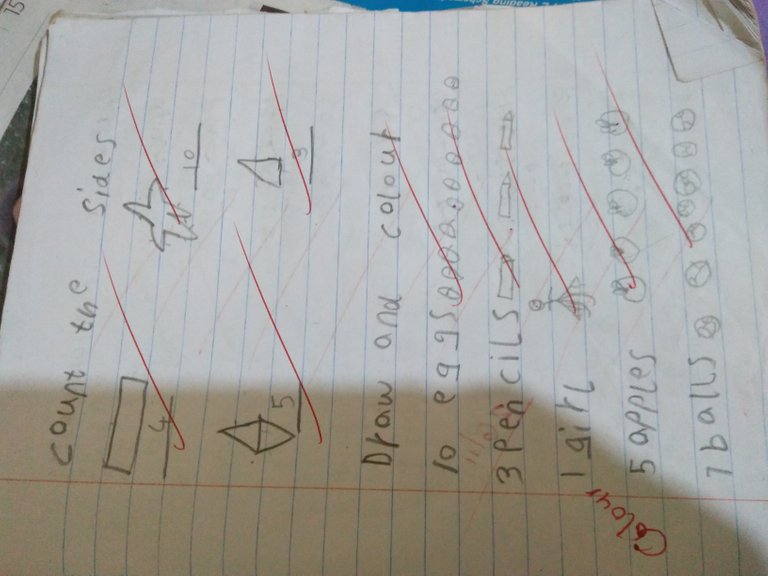 Count the sides
4 10
5 3
Draw and colour
10 eggs
3 pencils
1 girl
5 apples
7 balls
Colour